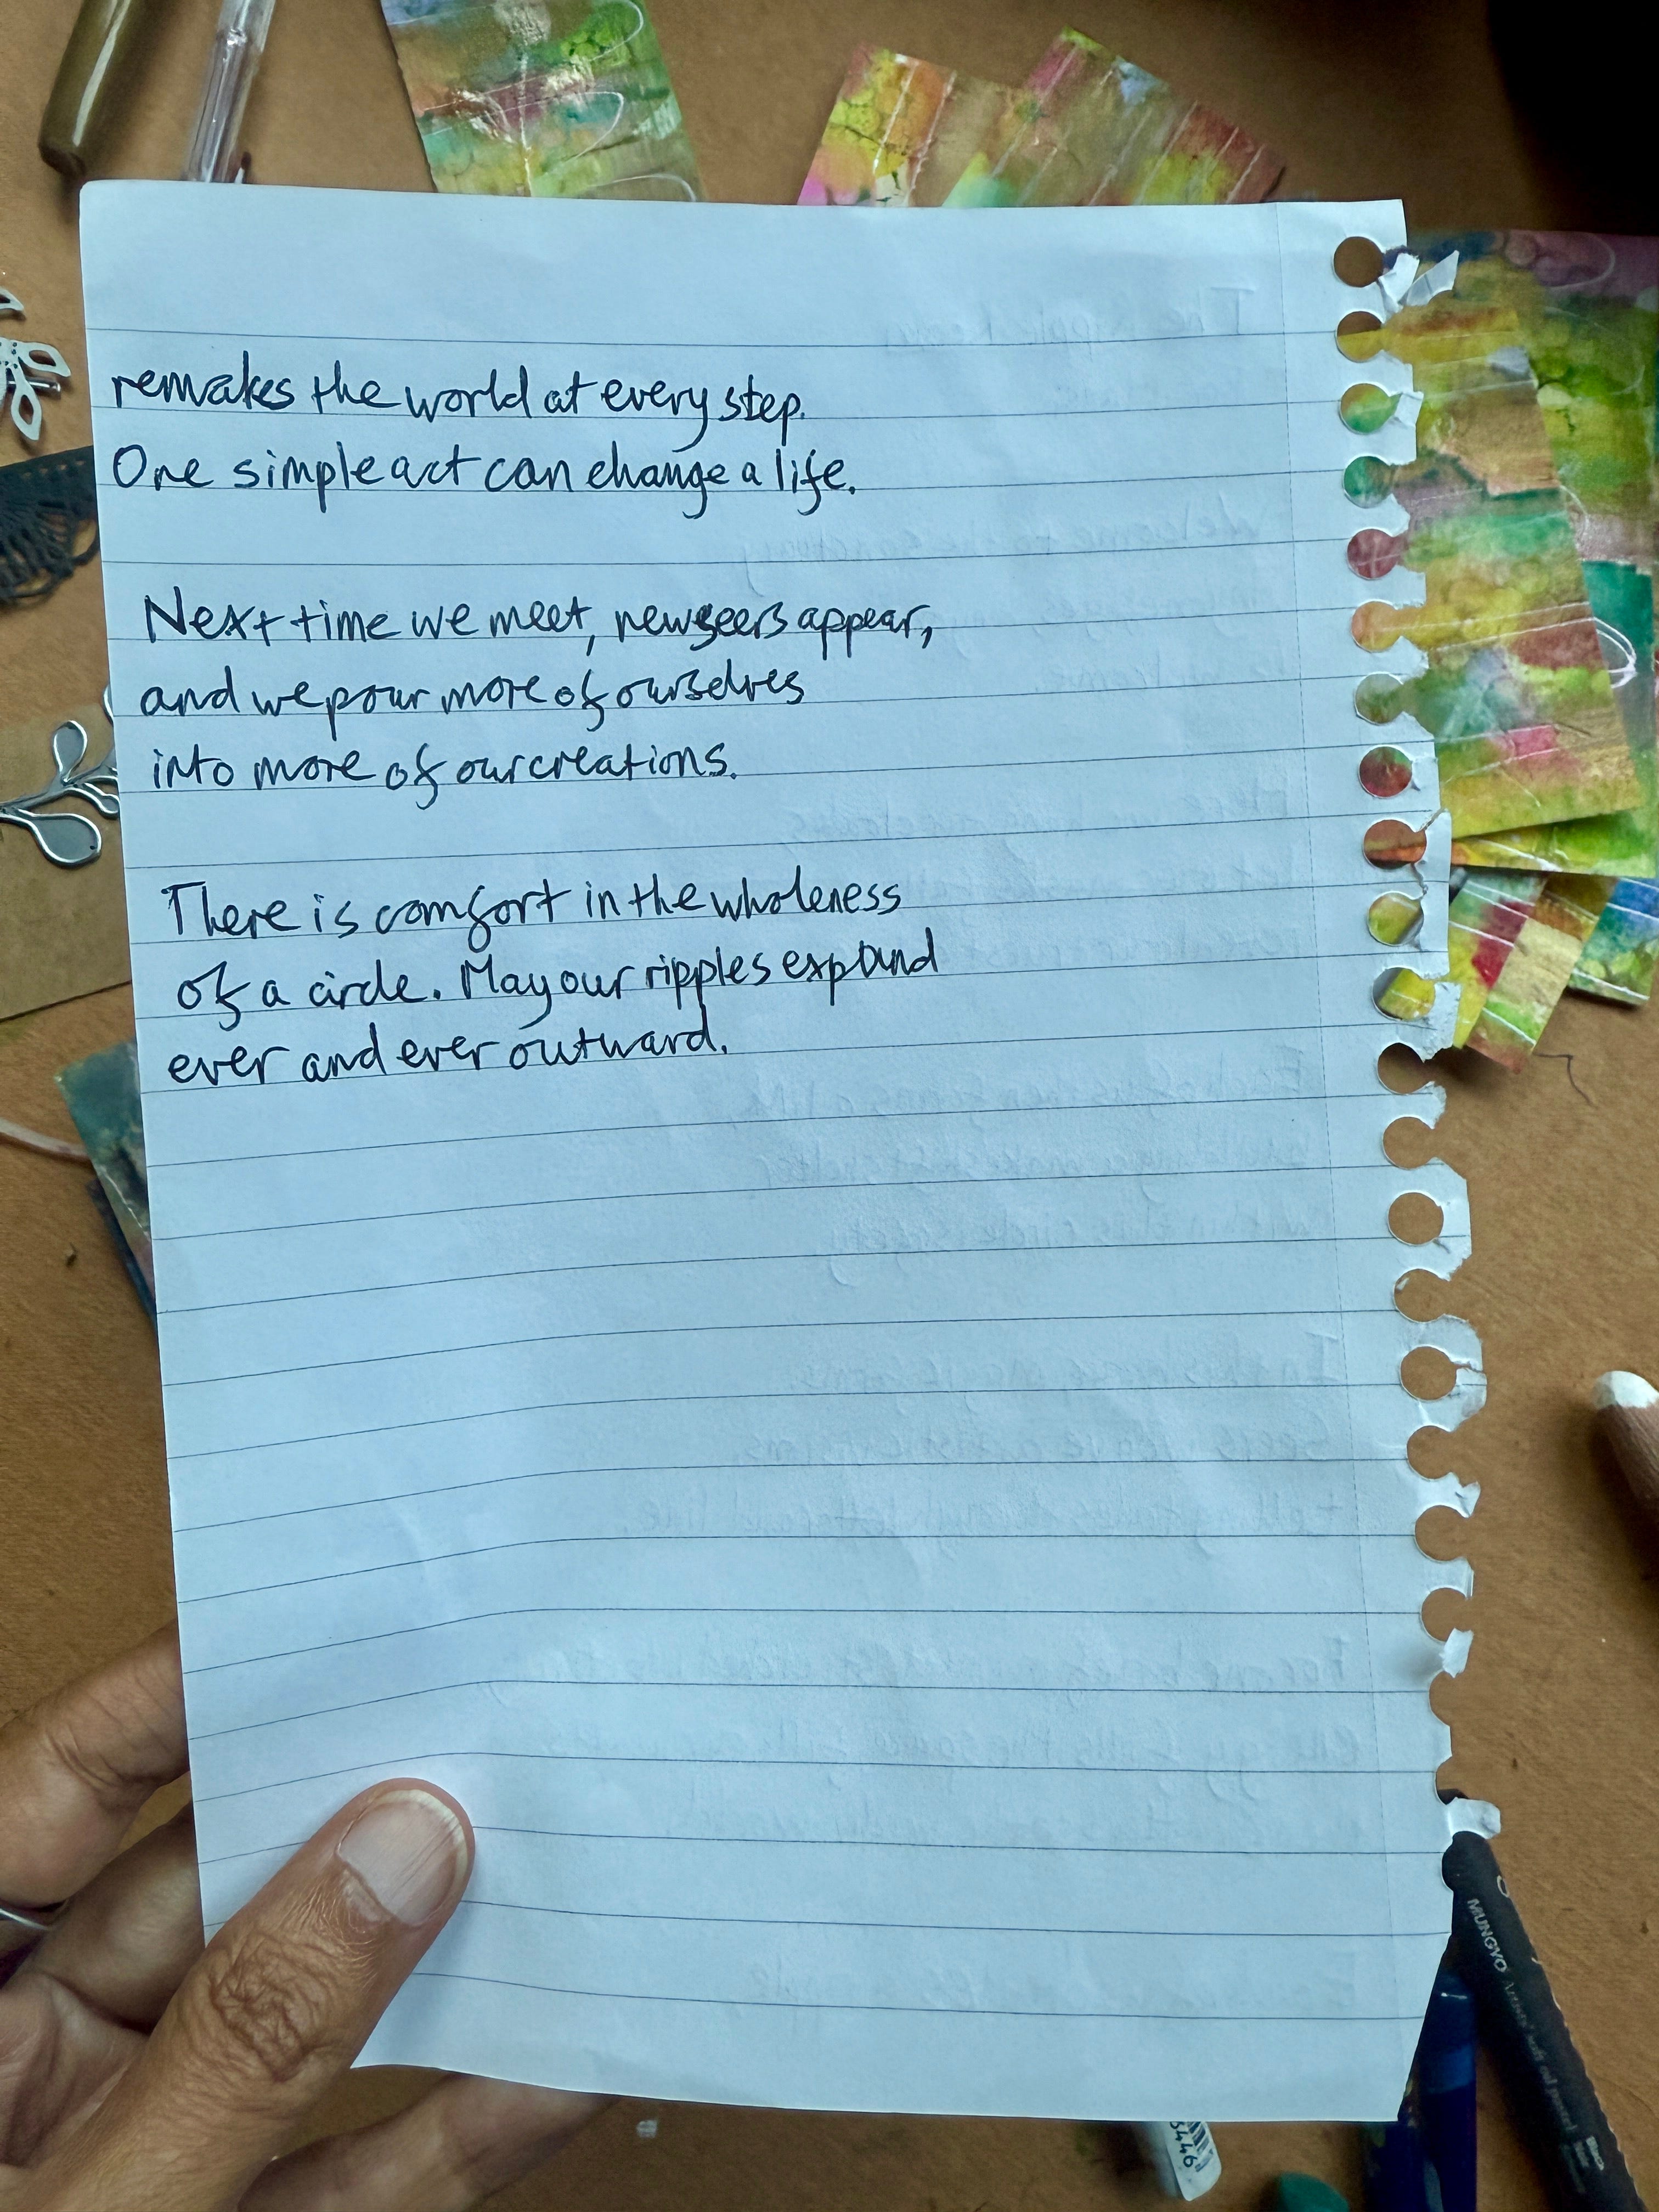 remakes the world at every step.
One simple act can change a life.
Next time we meet, new seers appear,
and we pour more of ourselves
into more of our creations.
There is comfort in the wholeness
of a circle. May our ripples expand
ever and ever outward.
MUNGYO
3446